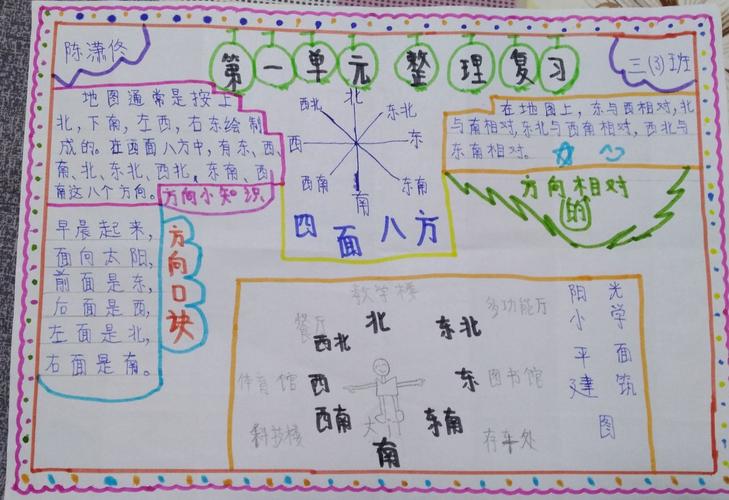 陈潇佟
第一单元 整理复习
三(3)班
地图通常是按上
北,下南,左西,右东绘制
成的。在四面八方中,有东、西、
南、北、东北、西北、东南、西
南这八个方向。
方向小知识
北
西北
东北
西
东
西南
东南
南
四面八方
在地图上,东与西相对,北
与南相对,东北与西南相对,西北与
东南相对。
方向相对
的
早晨起来,
面向太阳,
前面是东,
后面是西,
左面是北,
右面是南。
方向口诀
教学楼
北
餐厅
西北
多功能厅
东北
体育馆
西
东
图书馆
科技楼
西南
大门
东南
存车处
南
阳光
小学
平面
建筑
图